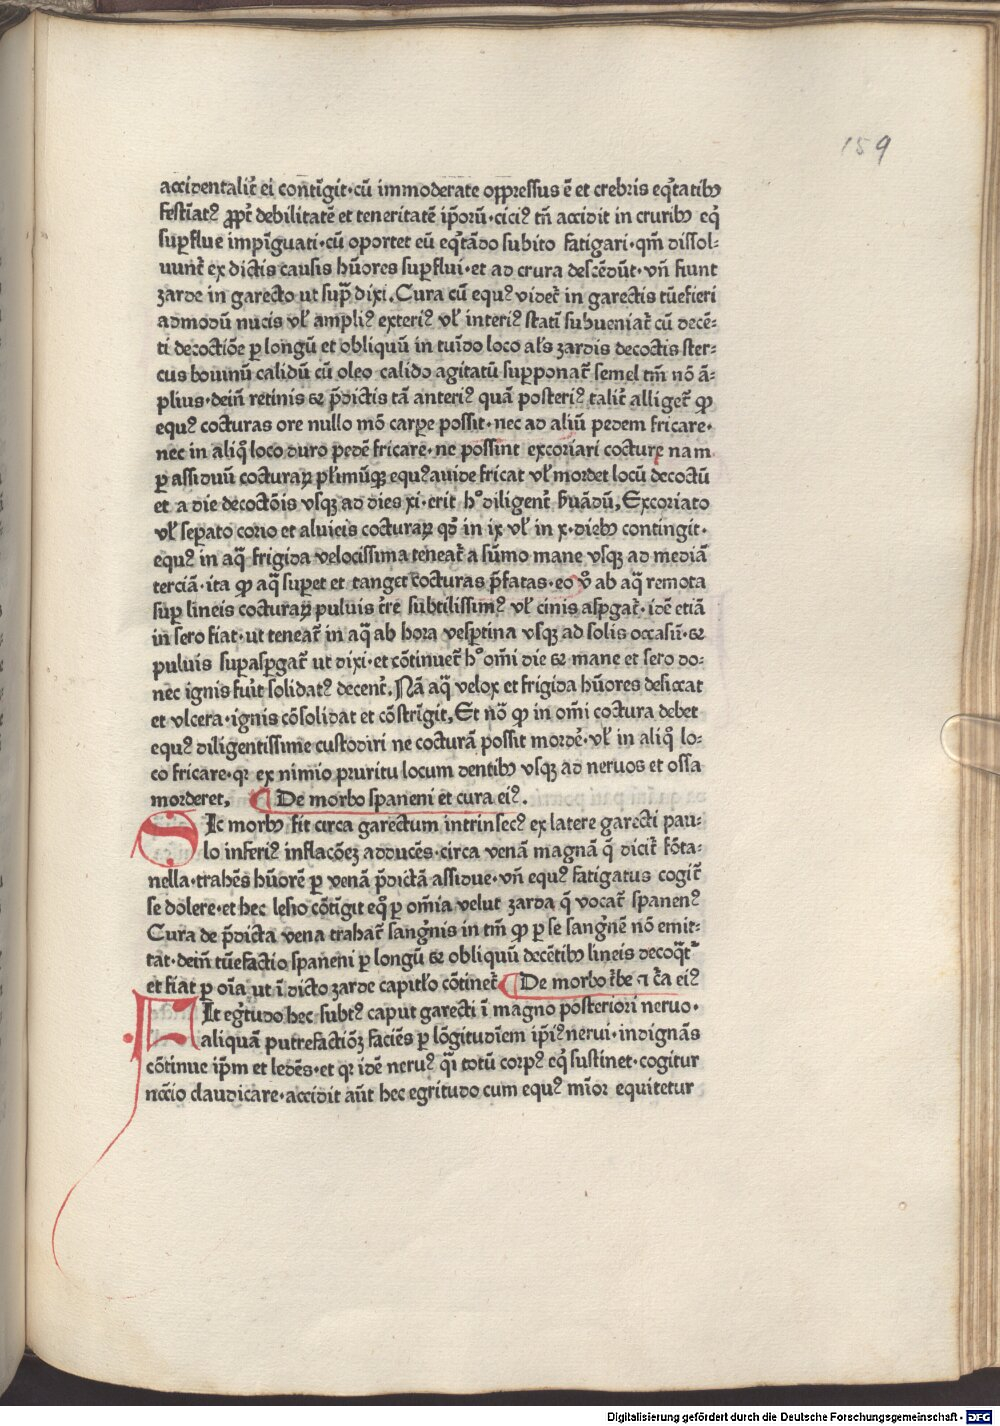 159
accidentalit̃ ei contĩgit·cũ immoderate oppressus ẽ et crebris eq̃tatibꝫ
festĩatꝰ ꝓpt̃ debilitatẽ et teneritatẽ ip̃orũ·cicꝰ tñ accidit in cruribꝫ eq̃
suꝑflue impĩguati·cũ oportet eũ eq̃tãdo subito fatigari·qm̃ dissol⸗
uunt̃ ex dictis causis hũores suꝑflui·et ad crura descẽdũt·vñ fiunt
zarde in garecto ut sup̃ dixi. Cura cũ equꝰ videt̃ in garectis tũefieri
admodũ nucis vł ampliꝰ exteriꝰ vł interiꝰ statĩ subueniat̃ cũ decẽ⸗
ti decoctiõe ꝑ longũ et obliquũ in tuĩdo loco al's zardis decoctis ster⸗
cus bouinũ calidũ cũ oleo calido agitatũ suꝑponat̃ semel tm̃ nõ ã⸗
plius·deiñ retinis ⁊ p̃dictis tã anteriꝰ quã posteriꝰ talit̃ alliget̃ ꝙ
equꝰ cocturas ore nullo mõ carpe possit·nec ad aliũ pedem fricare·
nec in aliq̃ loco duro pedẽ fricare·ne possint excoriari cocture nam
ꝑ assiduũ cocturaꝝ pl̃imũqꝫ equꝰ auide fricat vł mordet locũ decoctũ
et a die decoctõis vsqꝫ ad dies xi·erit hᵒ diligent̃ ẜuãdũ, Excoriato
vł seꝑato corio et aluicis cocturaꝝ qd̃ in ix vł in x·diebꝫ contingit·
equꝰ in aq̃ frigida velocissima teneat̃ a sũmo mane vsqꝫ ad mediã
terciã·ita ꝙ aq̃ suꝑet et tanget cocturas p̃fatas·eo v̊ ab aq̃ remota
suꝑ lineis cocturaꝝ puluis t̃re subtilissimꝰ vł cinis aspgat̃·idẽ etiã
in sero fiat·ut teneat̃ in aq̃ ab hora vesꝑtina vsqꝫ ad solis occasũ·⁊
puluis suꝑaspgat̃ ut dixi·et cõtinuet̃ hᵒ om̃i die ⁊ mane et sero do⸗
nec ignis fuĩt solidatꝰ decent̃. Nã aq̃ velox et frigida hũores desiccat
et vlcera·ignis cõsolidat et cõstrĩgit. Et nõ ꝙ in om̃i coctura debet
equꝰ diligentissime custodiri ne cocturã possit mordẽ·vł in aliq̊ lo⸗
co fricare·qꝛ ex nimio pruritu locum dentibꝫ vsqꝫ ad neruos et ossa
morderet, ¶ De morbo spaneni et cura eiꝰ.
SIc morbꝫ fit circa garectum intrinsecꝰ ex latere garecti pau⸗
lo inferiꝰ inflacõeꝫ adducẽs·circa venã magnã q̃ dicit̃ fõta⸗
nella·trahẽs hũorẽ ꝑ venã p̃dictã assidue·vñ equꝰ fatigatus cogit̃
se dolere·et hec lesio cõtĩgit eq̊ ꝑ om̃ia velut zarda q̃ vocat̃ spanenꝰ
Cura de p̃dicta vena trahat̃ sang̃nis in tm̃ ꝙ ꝑ se sang̃nẽ nõ emit⸗
tat·deiñ tũefactio spaneni ꝑ longũ ⁊ obliquũ decẽtibꝫ lineis decoq̃t̃
et fiat ꝑ oĩa ut ĩ dicto zarde capitł̃o cõtinet̃ ¶ De morbo c̃be ⁊ c̃a eiꝰ
FIt eg̃tudo hec subtꝰ caput garecti ĩ magno posteriori neruo·
aliquã putrefactiõꝫ faciẽs ꝑ lõgitudĩem ip̃iꝰ nerui·indignãs
cõtinue ip̃m et ledẽs·et qꝛ idẽ neruꝰ q̃i totũ corpꝰ eq̃ sustinet·cogitur
nc̃cio claudicare·accidit aũt hec egritudo cum equꝰ mĩor equitetur
Digitalisierung gefördert durch die Deutsche Forschungsgemeinschaft - DFG